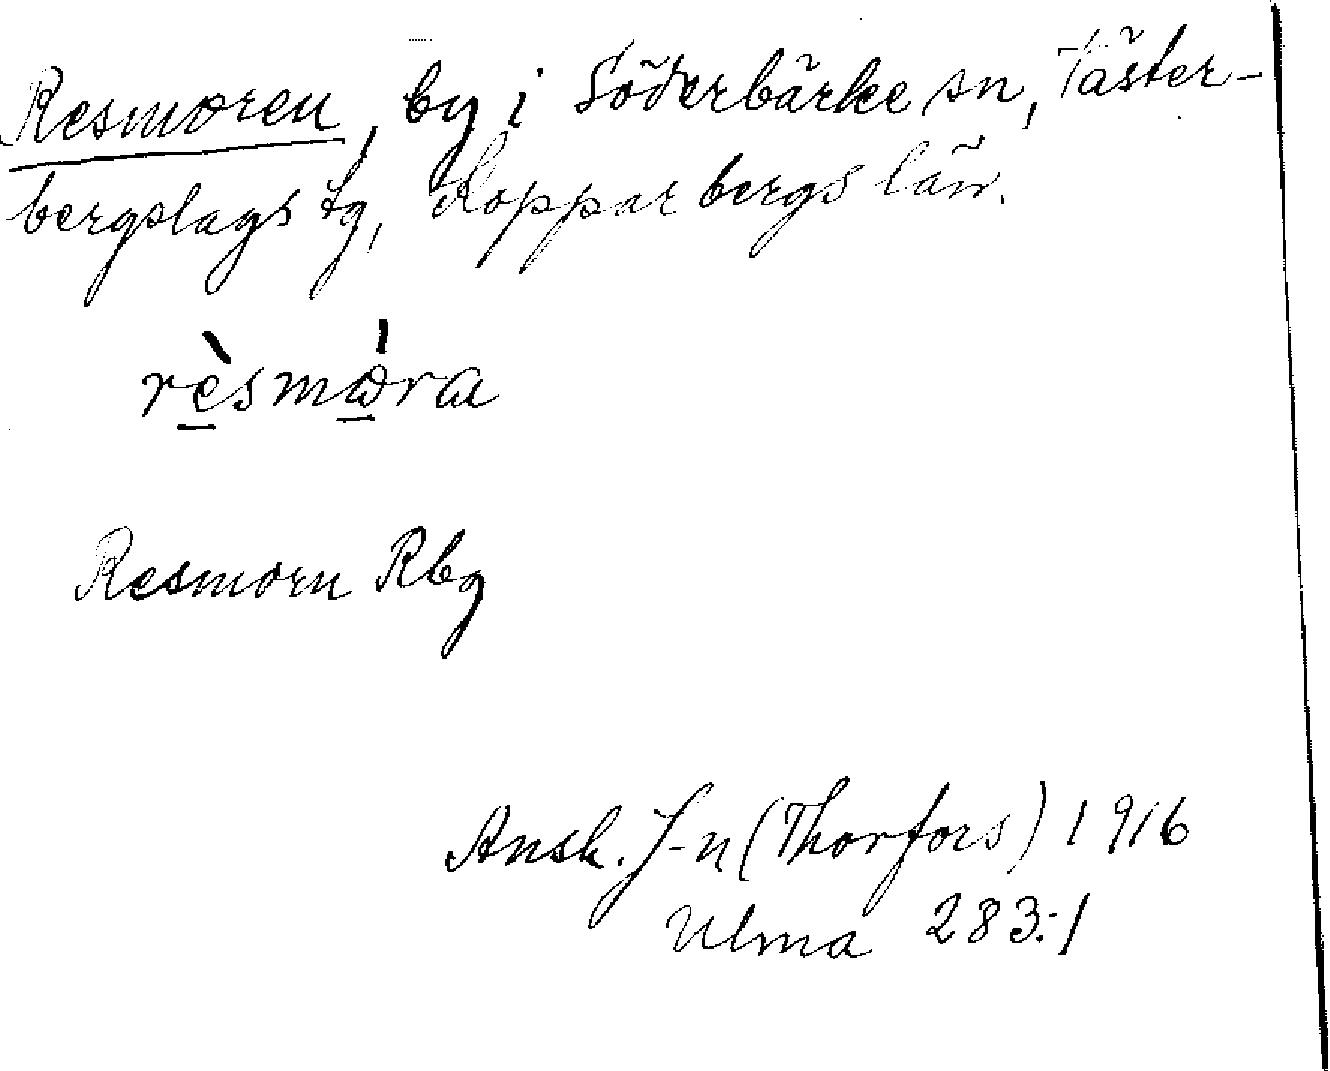 Resmoren, by i Söderbärke sn, Väster-
bergslags tg, Kopparbergs län.
rèsmὼra
Resmorn Rbg
Ansk. J-n (Thorfors) 1916
Ulma 283:1